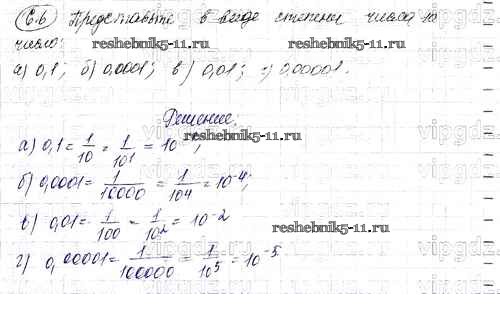 6.6 Представьте в виде степени числа 10
число:
reshebnik5-11.ru
а) 0,1; б) 0,0001; в) 0,01; г) 0,00001.
Решение.
reshebnik5-11.ru
а) 0,1 = 1/10 = 1/10¹ = 10⁻¹;
б) 0,0001 = 1/10000 = 1/10⁴ = 10⁻⁴;
в) 0,01 = 1/100 = 1/10² = 10⁻²
reshebnik5-11.ru
г) 0,00001 = 1/100000 = 1/10⁵ = 10⁻⁵.